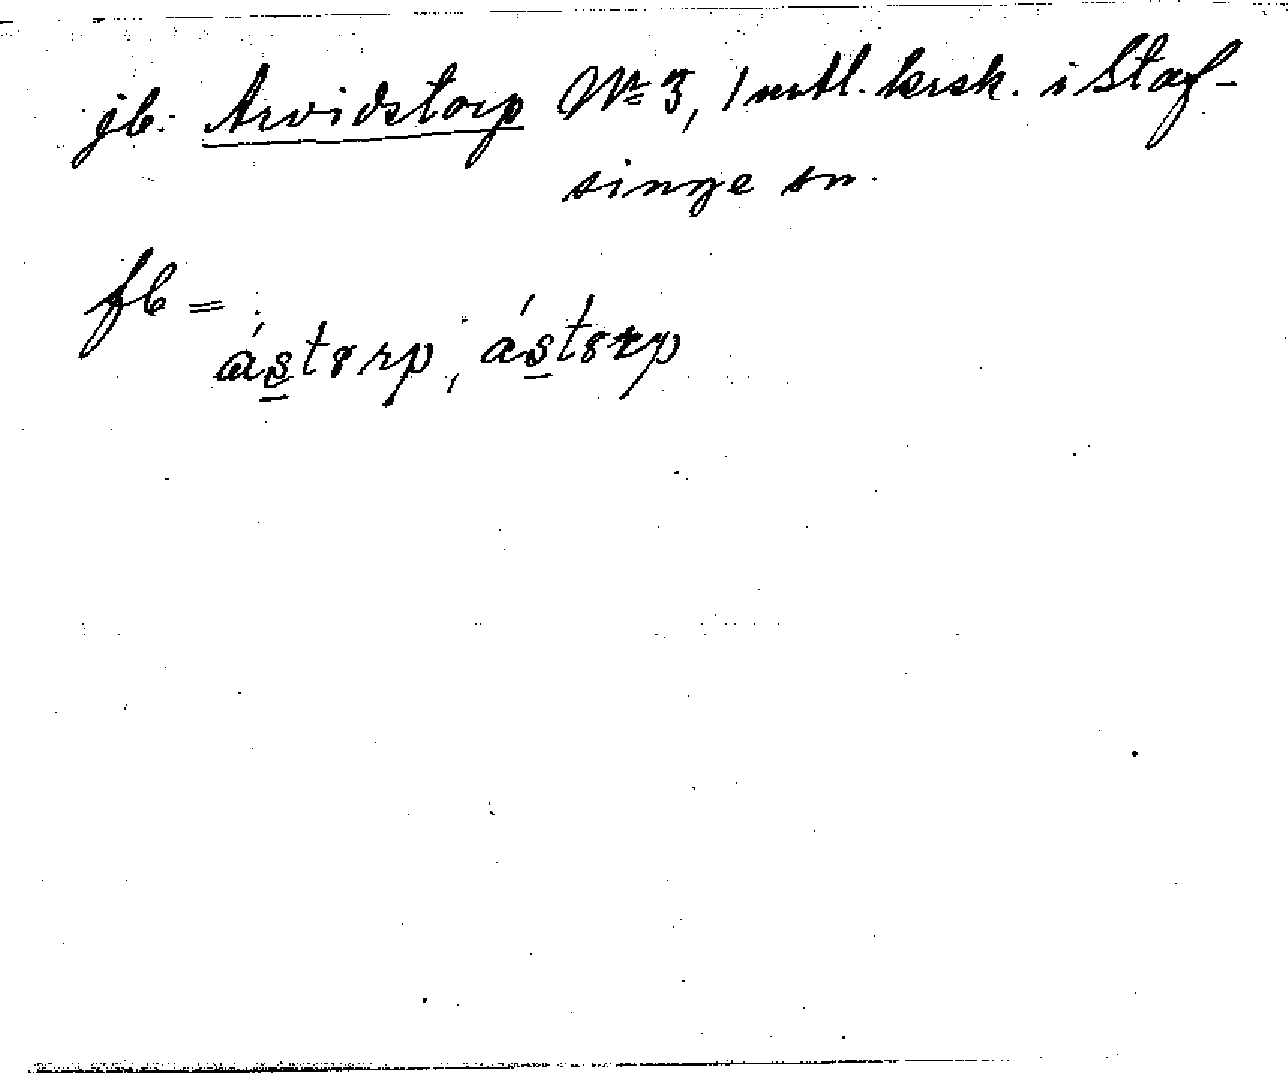 jb. Arvidstorp № 3, 1 mtl. krsk. i Staf-
singe sn.
fb =
ástorp, ástorp